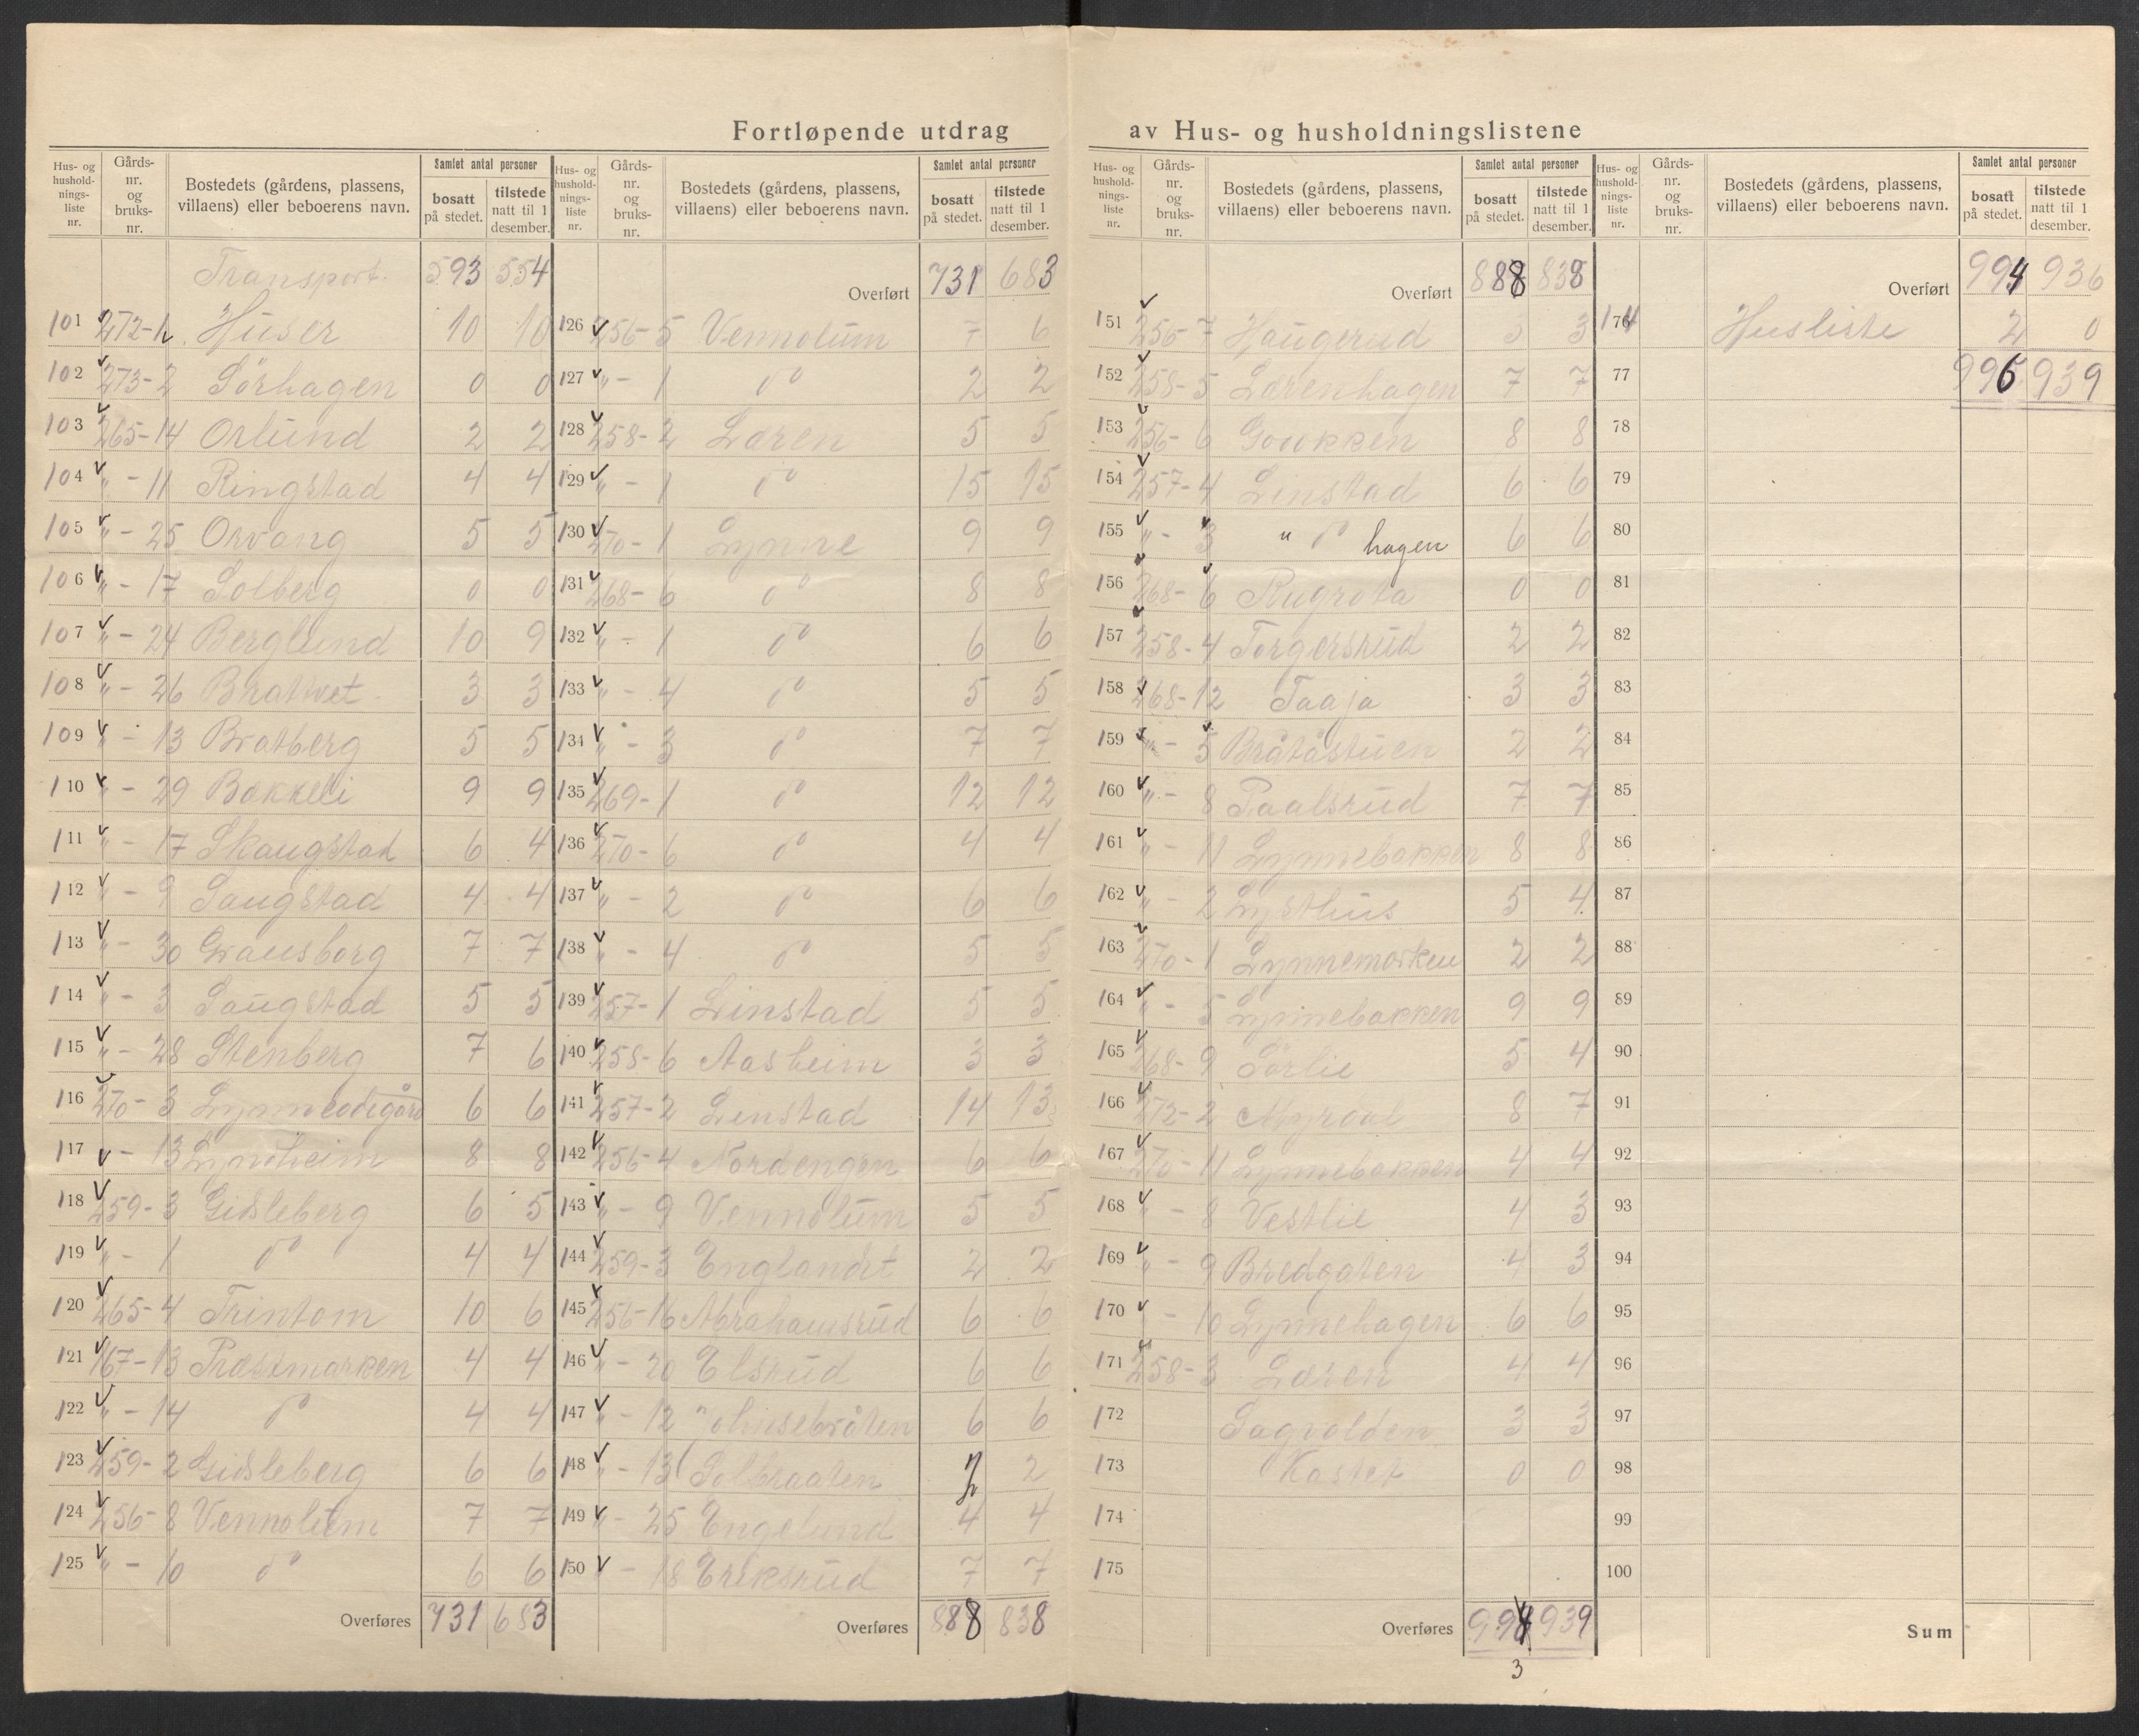 Fortløpende utdrag av Hus- og husholdningslistene
Hus- og husholdningsliste nr. | Gårds-nr. og bruks-nr. | Bostedets (gårdens, plassens, villaens) eller beboerens navn. | Samlet antal personer bosatt på stedet. | tilstede natt til 1 desember.
Transport. 593 554
101 272-1 Huser 10 10
102 273-2 Sörhagen 0 0
103 265-14 Orlund 2 2
104 " - 11 Ringstad 4 4
105 " - 25 Orvang 5 5
106 " - 17 Solberg 0 0
107 " - 24 Berglund 10 9
108 " - 26 Brattvet 3 3
109 " - 13 Bratberg 5 5
110 " - 29 Bakkeli 9 9
111 " - 17 Skaugstad 6 4
112 " - 9 Saugstad 4 4
113 " - 30 Gransborg 7 7
114 " - 3 Saugstad 5 5
115 " - 28 Stenberg 7 6
116 270-3 Lynneödegård 6 6
117 " - 13 Lynheim 8 8
118 259-3 Gidsleberg 6 5
119 " - 1 do 4 4
120 265-4 Trintom 10 6
121 167-13 Præstmarken 4 4
122 " - 14 do 4 4
123 259-2 Gidsleberg 6 6
124 256-8 Vennolum 7 7
125 " - 10 do 6 6
Overføres 731 683
Hus- og husholdningsliste nr. | Gårds-nr. og bruks-nr. | Bostedets (gårdens, plassens, villaens) eller beboerens navn. | Samlet antal personer bosatt på stedet. | tilstede natt til 1 desember.
Overført 731 683
126 256-5 Vennolum 7 6
127 " - 1 do 2 2
128 258-2 Løren 5 5
129 " - 1 do 15 15
130 270-1 Lynne 9 9
131 268-6 do 8 8
132 " - 1 do 6 6
133 " - 4 do 5 5
134 " - 3 do 7 7
135 269-1 do 12 12
136 270-6 do 4 4
137 " - 2 do 6 6
138 " - 4 do 5 5
139 257-1 Linstad 5 5
140 258-6 Aasheim 3 3
141 257-2 Linstad 14 13
142 256-4 Nordengen 6 6
143 " - 9 Vennolum 5 5
144 259-3 Englandt 2 2
145 256-16 Abrahamsrud 6 6
146 " - 20 Elsrud 6 6
147 " - 12 6 6
148 " - 13 Solbraaten 2 2
149 " - 25 Engelund 4 4
150 - 18 Eriksrud 7 7
Overføres 888 838
Hus- og husholdningsliste nr. | Gårds-nr. og bruks-nr. | Bostedets (gårdens, plassens, villaens) eller beboerens navn. | Samlet antal personer bosatt på stedet. | tilstede natt til 1 desember.
Overført 888 838
151 256-7 Haugerud 3 3
152 258-5 Lørenhagen 7 7
153 256-6 8 8
154 257-4 Linstad 6 6
155 " - 3 " do hagen 6 6
156 268-6 Rugrota 0 0
157 258-4 Torgersrud 2 2
158 268-12 Taaja 3 3
159 " - 5 Bråtåstuen 2 2
160 " - 8 Paalsrud 7 7
161 " - 11 Lynnebakken 8 8
162 " - 2 Lysthus 5 4
163 270-1 Lynnemorken 2 2
164 " - 5 Lynnebakken 9 9
165 268-9 Sørlie 5 4
166 272-2 Myrdal 8 7
167 270-11 Lynnebakken 4 4
168 " - 8 Vestlie 4 3
169 " - 9 Bredgaten 4 3
170 " - 10 Lynnehagen 6 6
171 258-3 Løren 4 4
172 Sagvolden 3 3
173 Kastet 0 0
174
175
Overføres 994 939
3
Hus- og husholdningsliste nr. | Gårds-nr. og bruks-nr. | Bostedets (gårdens, plassens, villaens) eller beboerens navn. | Samlet antal personer bosatt på stedet. | tilstede natt til 1 desember.
Overført 994 936
174 Husliste 2 0
77 996 939
78
79
80
81
82
83
84
85
86
87
88
89
90
91
92
93
94
95
96
97
98
99
100
Sum